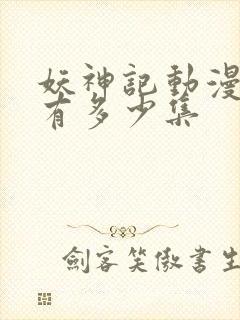 妖神記動漫
有多少集
劍客笑傲書生